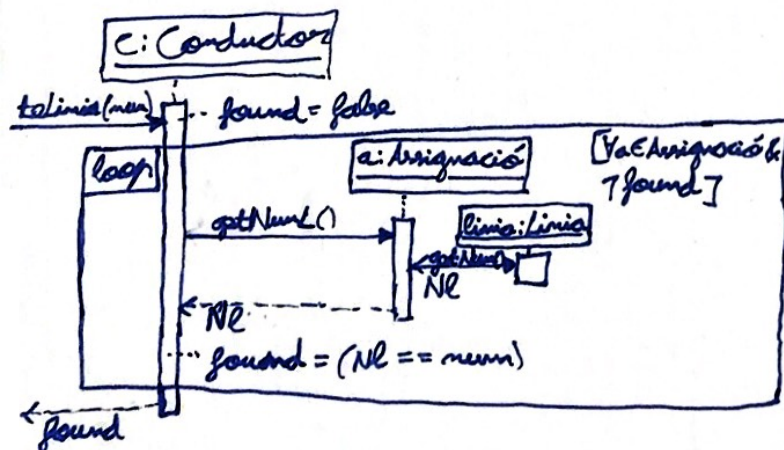 C: Conductor
teLinia(num)
found = false
loop
a: Assignació
[∀a∈Assignació &
¬found]
getNumL()
linia: Linia
getNum()
Nl
Nl
found = (Nl == num)
found